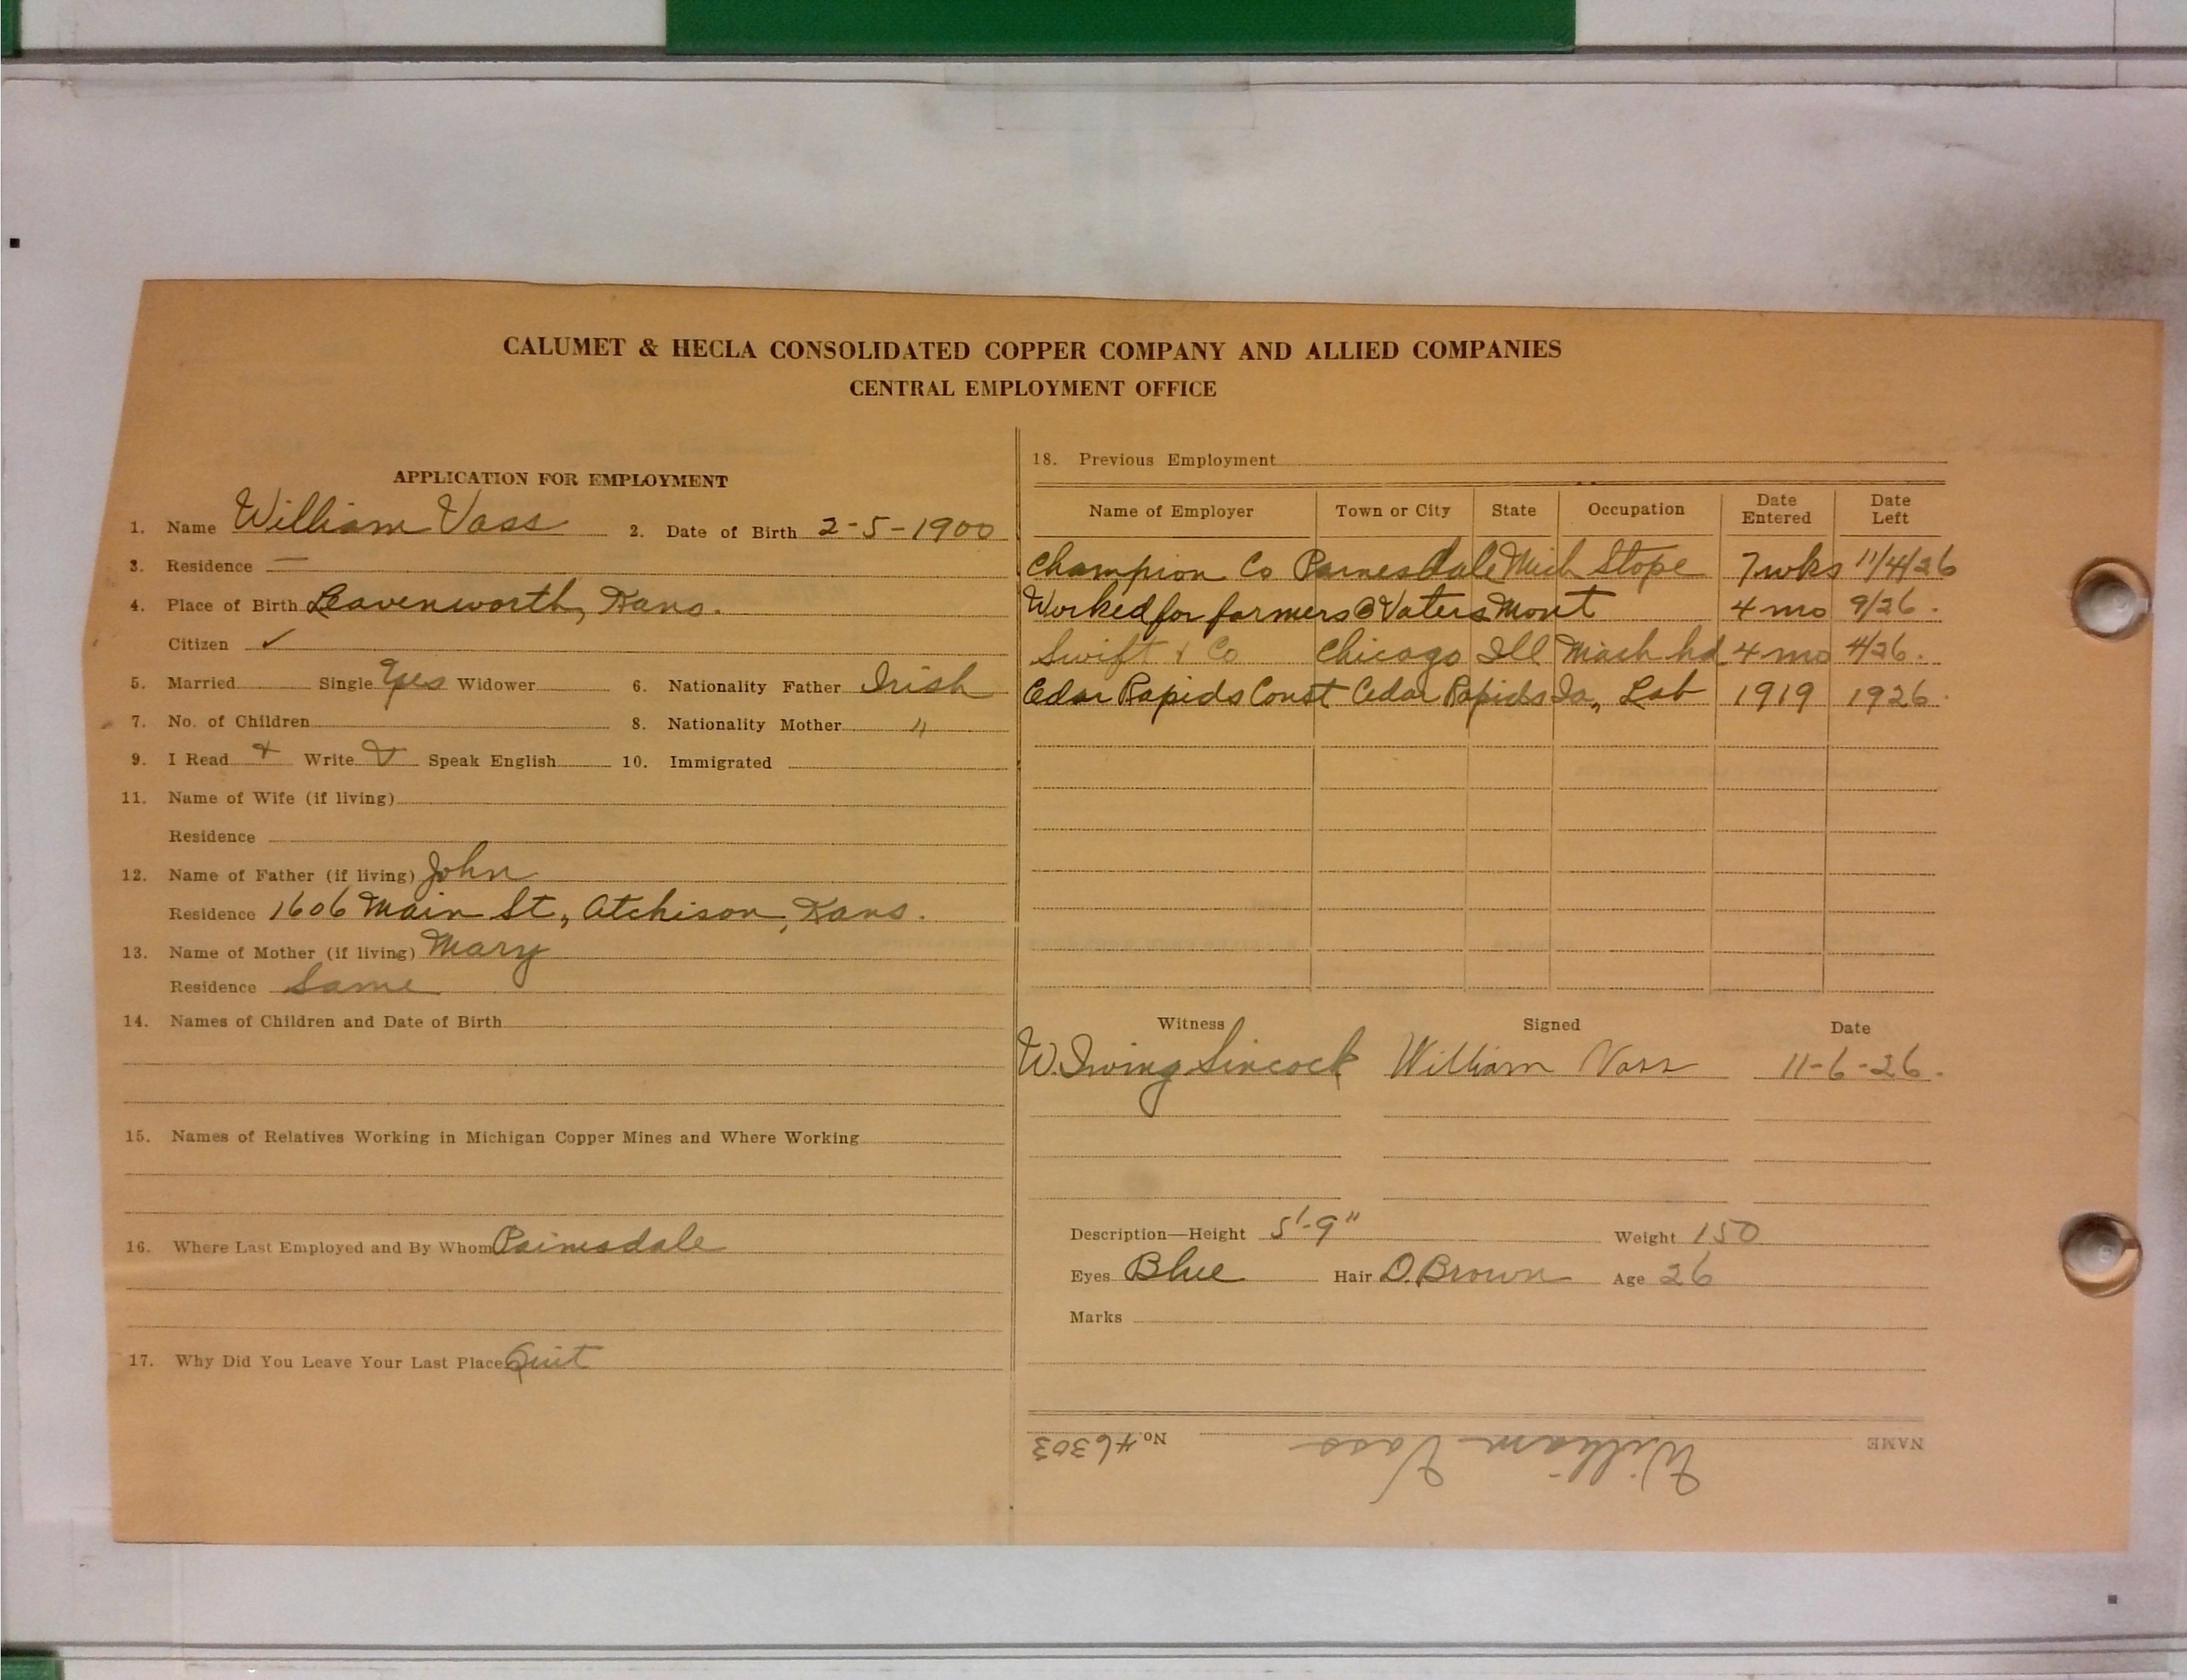 CALUMET & HECLA CONSOLIDATED COPPER COMPANY AND ALLIED COMPANIES
CENTRAL EMPLOYMENT OFFICE
APPLICATION FOR EMPLOYMENT
1. Name William Vass 2. Date of Birth 2-5-1900
3. Residence —
4. Place of Birth Leavenworth, Kans.
Citizen ✓
5. Married Single Yes Widower 6. Nationality Father Irish
7. No. of Children 8. Nationality Mother "
9. I Read Write Speak English 10. Immigrated
11. Name of Wife (if living)
Residence
12. Name of Father (if living) John
Residence 1606 Main St., Atchison, Kans.
13. Name of Mother (if living) Mary
Residence Same
14. Names of Children and Date of Birth
15. Names of Relatives Working in Michigan Copper Mines and Where Working
16. Where Last Employed and By Whom Painesdale
17. Why Did You Leave Your Last Place Quit
18. Previous Employment
Name of Employer Town or City State Occupation Date Entered Date Left
Champion Co Painesdale Mich Stope 7 wks 11/4/26
Worked for farmers @ Vaters Mont 4 mo 9/26.
Swift & Co Chicago Ill Mach hd 4 mo 4/26.
Cedar Rapids Const Cedar Rapids Ia, Lab 1919 1926.
Witness Signed Date
W. Irving Sincock William Vass 11-6-26.
Description—Height 5'-9" Weight 150
Eyes Blue Hair D. Brown Age 26
Marks
NAME William Vass No. 46303